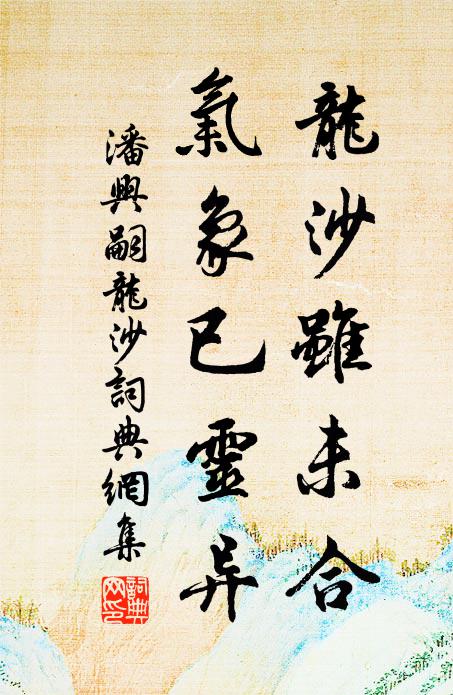 龍沙雖未合
氣象已靈异
潘興嗣龍沙詞典網集
詞典網印